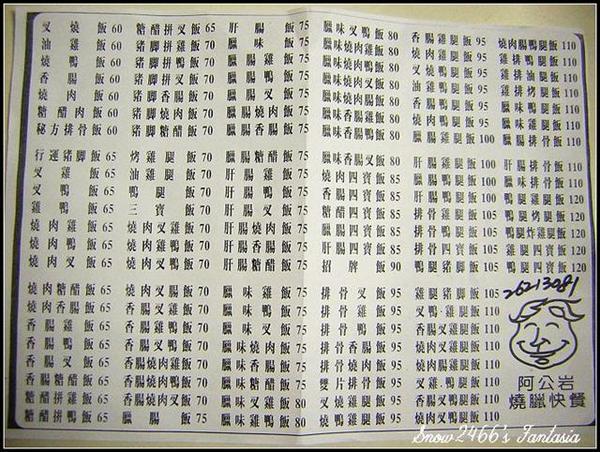 叉燒飯 60
油雞飯 60
燒鴨飯 60
香腸飯 60
燒肉飯 60
糖醋肉飯 60
秘方排骨飯 60
行運豬脚飯 65
叉雞飯 65
叉鴨飯 65
雞鴨飯 65
燒肉雞飯 65
燒肉鴨飯 65
燒肉叉飯 65
燒肉糖醋飯 65
燒肉香腸飯 65
香腸雞飯 65
香腸鴨飯 65
香腸叉飯 65
香腸糖醋飯 65
糖醋拼鴨飯 65
糖醋拼叉飯 65
豬脚拼雞飯 70
豬脚拼鴨飯 70
豬脚香腸飯 70
豬脚拼叉飯 70
豬脚燒肉飯 70
豬脚糖醋飯 70
烤雞腿飯 70
油雞腿飯 70
鴨腿飯 70
三寶飯 70
燒肉叉雞飯 70
燒肉雞鴨飯 70
燒肉叉鴨飯 70
燒肉叉腸飯 70
香腸叉雞飯 70
香腸叉鴨飯 70
香腸雞鴨飯 70
香腸燒肉雞飯 70
香腸燒肉鴨飯 70
香腸燒肉叉飯 70
臘腸飯 75
肝腸飯 75
臘味飯 75
臘腸雞飯 75
臘腸鴨飯 75
臘腸叉飯 75
臘腸燒肉飯 75
臘腸香腸飯 75
臘腸糖醋飯 75
肝腸雞飯 75
肝腸鴨飯 75
肝腸叉飯 75
肝腸燒肉飯 75
肝腸香腸飯 75
肝腸糖醋飯 75
臘味雞飯 75
臘味鴨飯 75
臘味叉飯 75
臘味燒肉飯 75
臘味香腸飯 75
臘味糖醋飯 75
臘味雞鴨飯 80
臘味叉雞飯 80
臘味叉鴨飯 80
臘味燒肉雞飯 80
臘味燒肉鴨飯 80
臘味燒肉叉飯 80
臘味燒肉腸飯 80
臘味香腸雞飯 80
臘味香腸鴨飯 80
臘味香腸叉飯 80
燒肉四寶飯 85
香腸四寶飯 85
糖醋四寶飯 85
臘腸四寶飯 85
肝腸四寶飯 85
招牌飯 90
排骨叉飯 95
排骨雞飯 95
排骨鴨飯 95
排骨香腸飯 95
排骨燒肉飯 95
雙片排骨飯 95
叉燒雞腿飯 95
燒鴨雞腿飯 95
香腸雞腿飯 95
燒肉雞腿飯 95
叉燒鴨腿飯 95
油雞鴨腿飯 95
香腸鴨腿飯 95
燒肉鴨腿飯 95
臘腸雞腿飯 100
臘腸鴨腿飯 100
排骨四寶飯 105
鴨腿豬脚飯 105
雞腿豬脚飯 105
叉鴨.雞腿飯 110
叉雞.鴨腿飯 110
燒肉叉鴨腿飯 110
燒肉鴨腿飯 110
雞排鴨腿飯 110
雞排油腿飯 110
雞排烤腿飯 110
臘味鴨腿飯 110
臘味雞腿飯 110
臘腸排骨飯 110
肝腸排骨飯 110
臘味排骨飯 110
鴨腿雞腿飯 120
鴨腿烤腿飯 120
鴨腿炸雞飯 120
雞腿四寶飯 120
鴨腿四寶飯 120
26213081
阿公岩
燒臘快餐
Snow2466's Fantasia